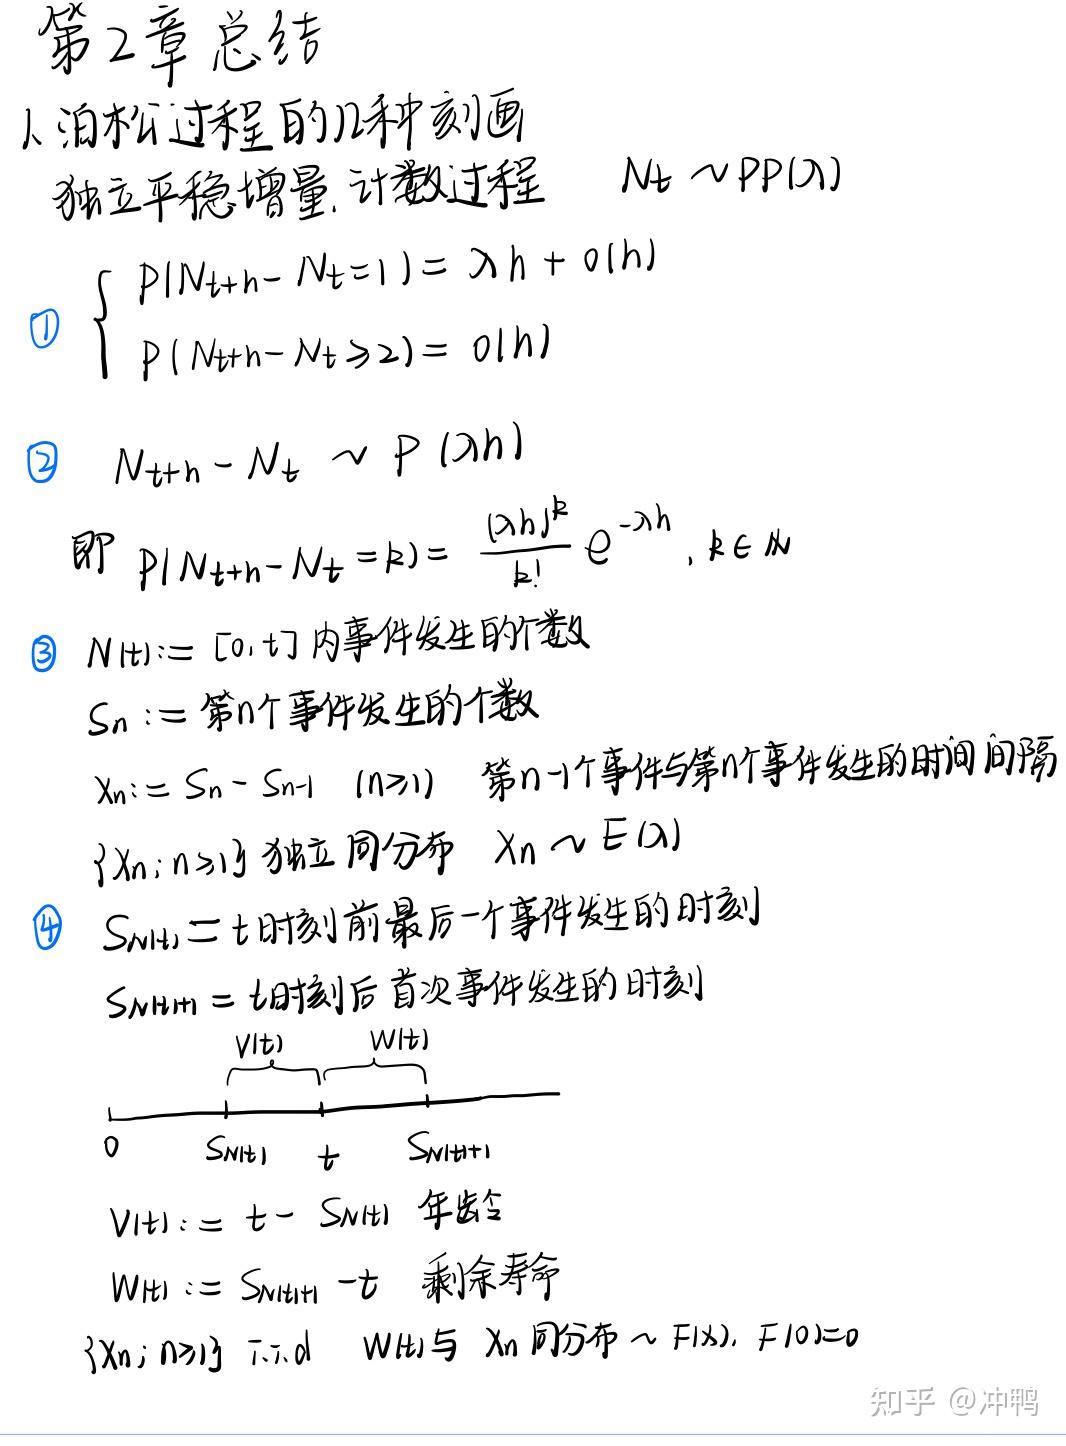 第2章总结
1、泊松过程的几种刻画
独立平稳增量.计数过程 Nt ~ PP(λ)
① { P(Nt+h - Nt = 1) = λh + o(h)
P(Nt+h - Nt ≥ 2) = o(h)
② Nt+h - Nt ~ P(λh)
即 P(Nt+h - Nt = k) = (λh)^k / k! e^{-λh}, k ∈ N
③ N(t) := [0, t] 内事件发生的个数
Sn := 第n个事件发生的个数
Xn := Sn - Sn-1 (n≥1) 第n-1个事件与第n个事件发生的时间间隔
{Xn; n≥1} 独立同分布 Xn ~ E(λ)
④ SN(t) = t时刻前最后一个事件发生的时刻
SN(t)+1 = t时刻后首次事件发生的时刻
V(t) W(t)
0 SN(t) t SN(t)+1
V(t) := t - SN(t) 年龄
W(t) := SN(t)+1 - t 剩余寿命
{Xn; n≥1} i.i.d W(t)与 Xn 同分布 ~ F(x), F(0)=0
知乎 @冲鸭